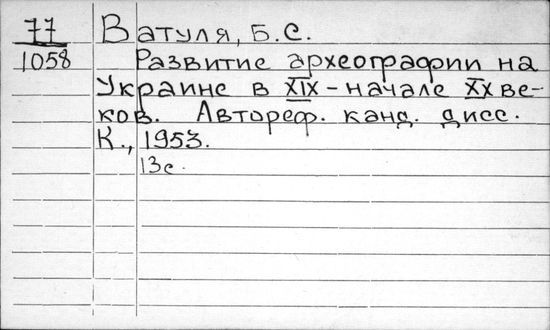 77 Ватуля, Б.С.
1058 Развитие археографии на
Украине в XIX - начале XX ве-
ков. Автореф. канд. дисс.
К., 1953.
13с.